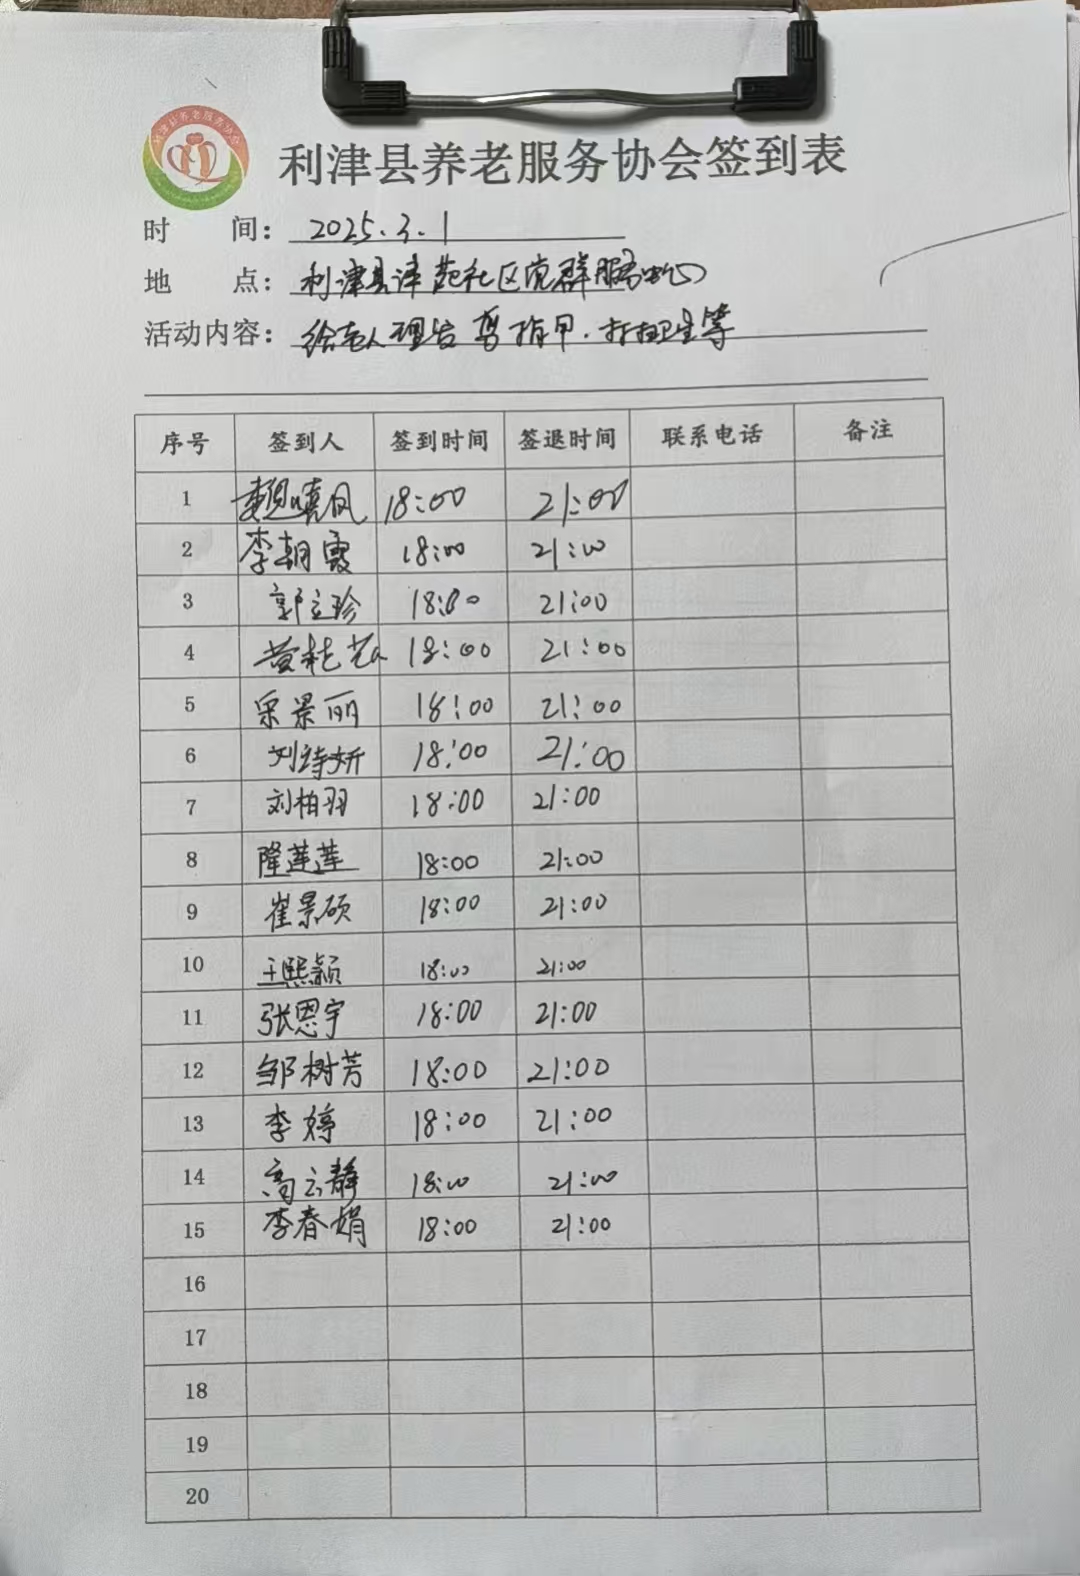 利津县养老服务协会
利津县养老服务协会签到表
时 间: 2025.3.1
地 点: 利津县津苑社区党群服务中心
活动内容: 给老人理发 剪指甲.打扫卫生等
序号 签到人 签到时间 签退时间 联系电话 备注
1 18:00 21:00
2 李朝霞 18:00 21:00
3 郭立珍 18:00 21:00
4 黄 18:00 21:00
5 景丽 18:00 21:00
6 刘诗妍 18:00 21:00
7 刘柏羽 18:00 21:00
8 隆莲莲 18:00 21:00
9 崔景硕 18:00 21:00
10 王熙颖 18:00 21:00
11 张恩宇 18:00 21:00
12 邹树芳 18:00 21:00
13 李婷 18:00 21:00
14 高云静 18:00 21:00
15 李春娟 18:00 21:00
16
17
18
19
20